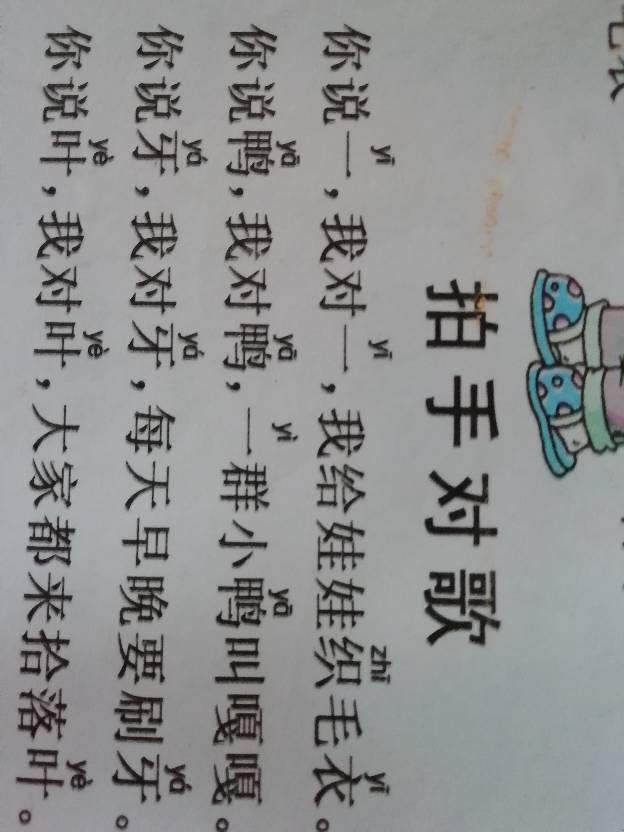 拍手对歌
你说一(yī)，我对一(yī)，我给娃娃织(zhī)毛衣(yī)。
你说鸭(yā)，我对鸭(yā)，一(yì)群小鸭(yā)叫嘎嘎。
你说牙(yá)，我对牙(yá)，每天早晚要刷牙(yá)。
你说叶(yè)，我对叶(yè)，大家都来拾落叶(yè)。